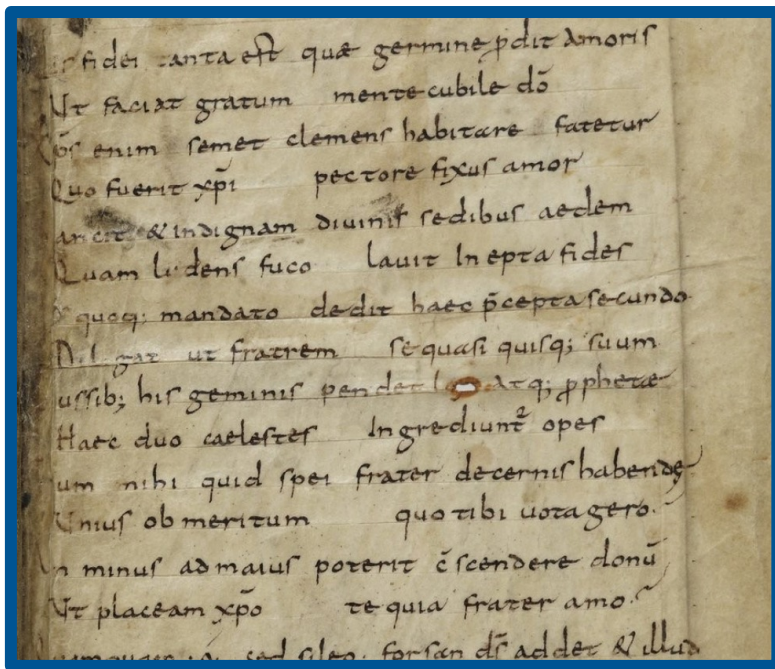 fidei tanta est quæ germine ꝓdit amoris
Ut faciat gratum mente cubile dō
enim semet clemens habitare fatetur
Quo fuerit xp̄i pectore fixus amor
& indignam divinis sedibus aedem
Quam lidens fuco lauit In epta fides
quoq; mandato dedit haec p̄cepta secundo
Diligat ut fratrem se quasi quisq; suum
ussib; his geminis pendet Atq; ꝓphetæ
Haec duo caelestes Ingrediunt̄ opes
um nihi quid spei frater decernis habendę
Unius ob meritum quo tibi uota gero.
n minus ad maius poterit c̄scendere donū
Ut placeam xp̄o te quia frater amo.
sed sileo forsan ds̄ addet & illud